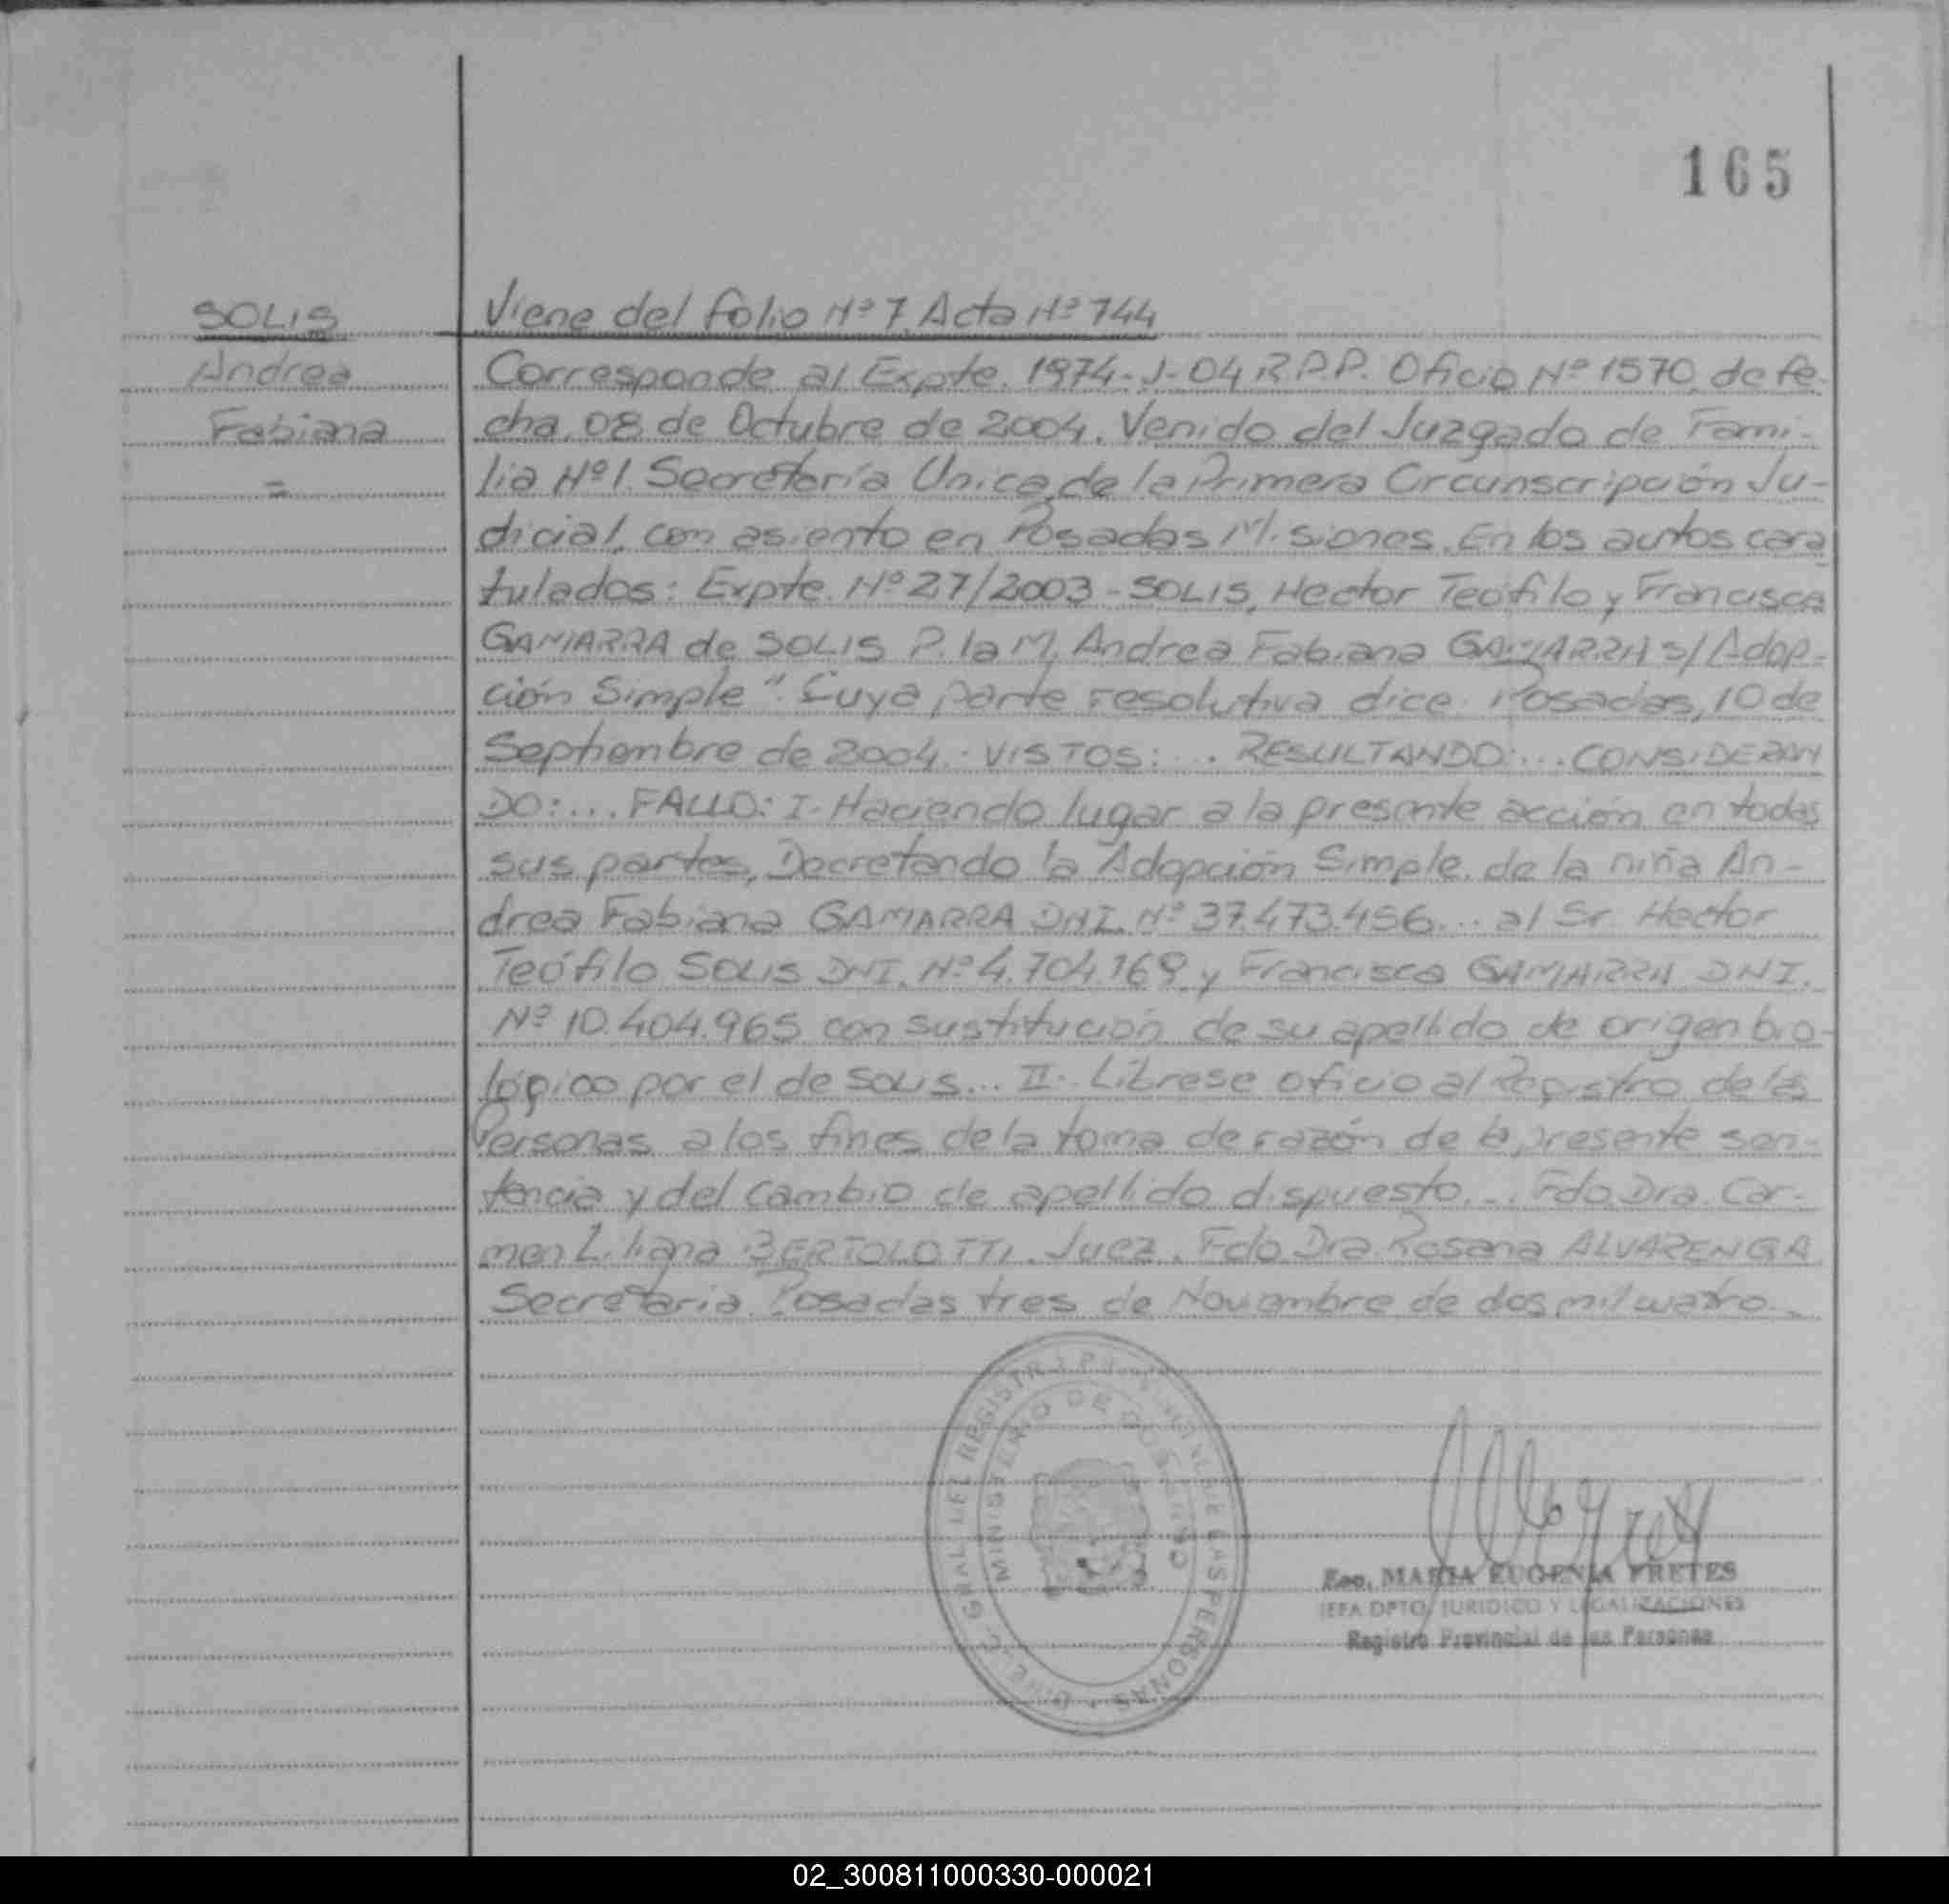 165
SOLIS
Andrea
Fabiana
=
Viene del folio Nº 7 Acta Nº 744
Corresponde al Expte. 1974-J-04 R.P.P. Oficio Nº 1570, de fe-
cha, 08 de Octubre de 2004. Venido del Juzgado de Fami-
lia Nº 1. Secretaría Unica, de la Primera Circunscripción Ju-
dicial, con asiento en Posadas Misiones. En los autos cara
tulados: Expte. Nº 27/2003 - SOLIS, Hector Teófilo y Francisca
GAMARRA de SOLIS P. la M. Andrea Fabiana GAMARRA s/ Adop-
ción Simple". Cuya parte resolutiva dice: Posadas, 10 de
Septiembre de 2004.- VISTOS: ... RESULTANDO: ... CONSIDERAN
DO: ... FALLO: I- Haciendo lugar a la presente acción en todas
sus partes, Decretando la Adopción Simple, de la niña An-
drea Fabiana GAMARRA DNI. Nº 37.473.456... al Sr. Hector
Teófilo SOLIS DNI. Nº 4.704.169 y Francisca GAMARRA DNI.
Nº 10.404.965 con sustitución de su apellido de origen bio-
lógico por el de SOLIS... II- Líbrese oficio al Registro de las
Personas a los fines de la toma de razón de la presente sen-
tencia y del cambio de apellido dispuesto... Fdo. Dra. Car-
men Liliana BERTOLOTTI. Juez. Fdo. Dra. Rosana ALVARENGA
Secretaria. Posadas tres de Noviembre de dos mil cuatro.-
MINISTERIO DE GOBIERNO
Esc. MARIA EUGENIA FRETES
JEFA DPTO. JURIDICO Y LEGALIZACIONES
Registro Provincial de las Personas
02_300811000330-000021